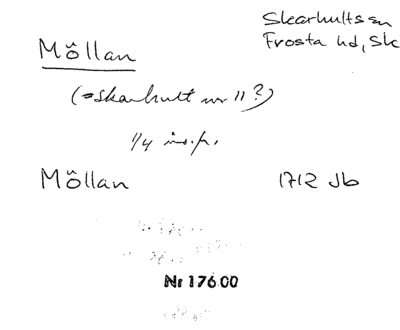 Skarhults sn
Frosta hd, Sk
Möllan
(= Skarhult nr 11?)
1/4 ins.fr.
Möllan 1712 Jb
Nr 176.00